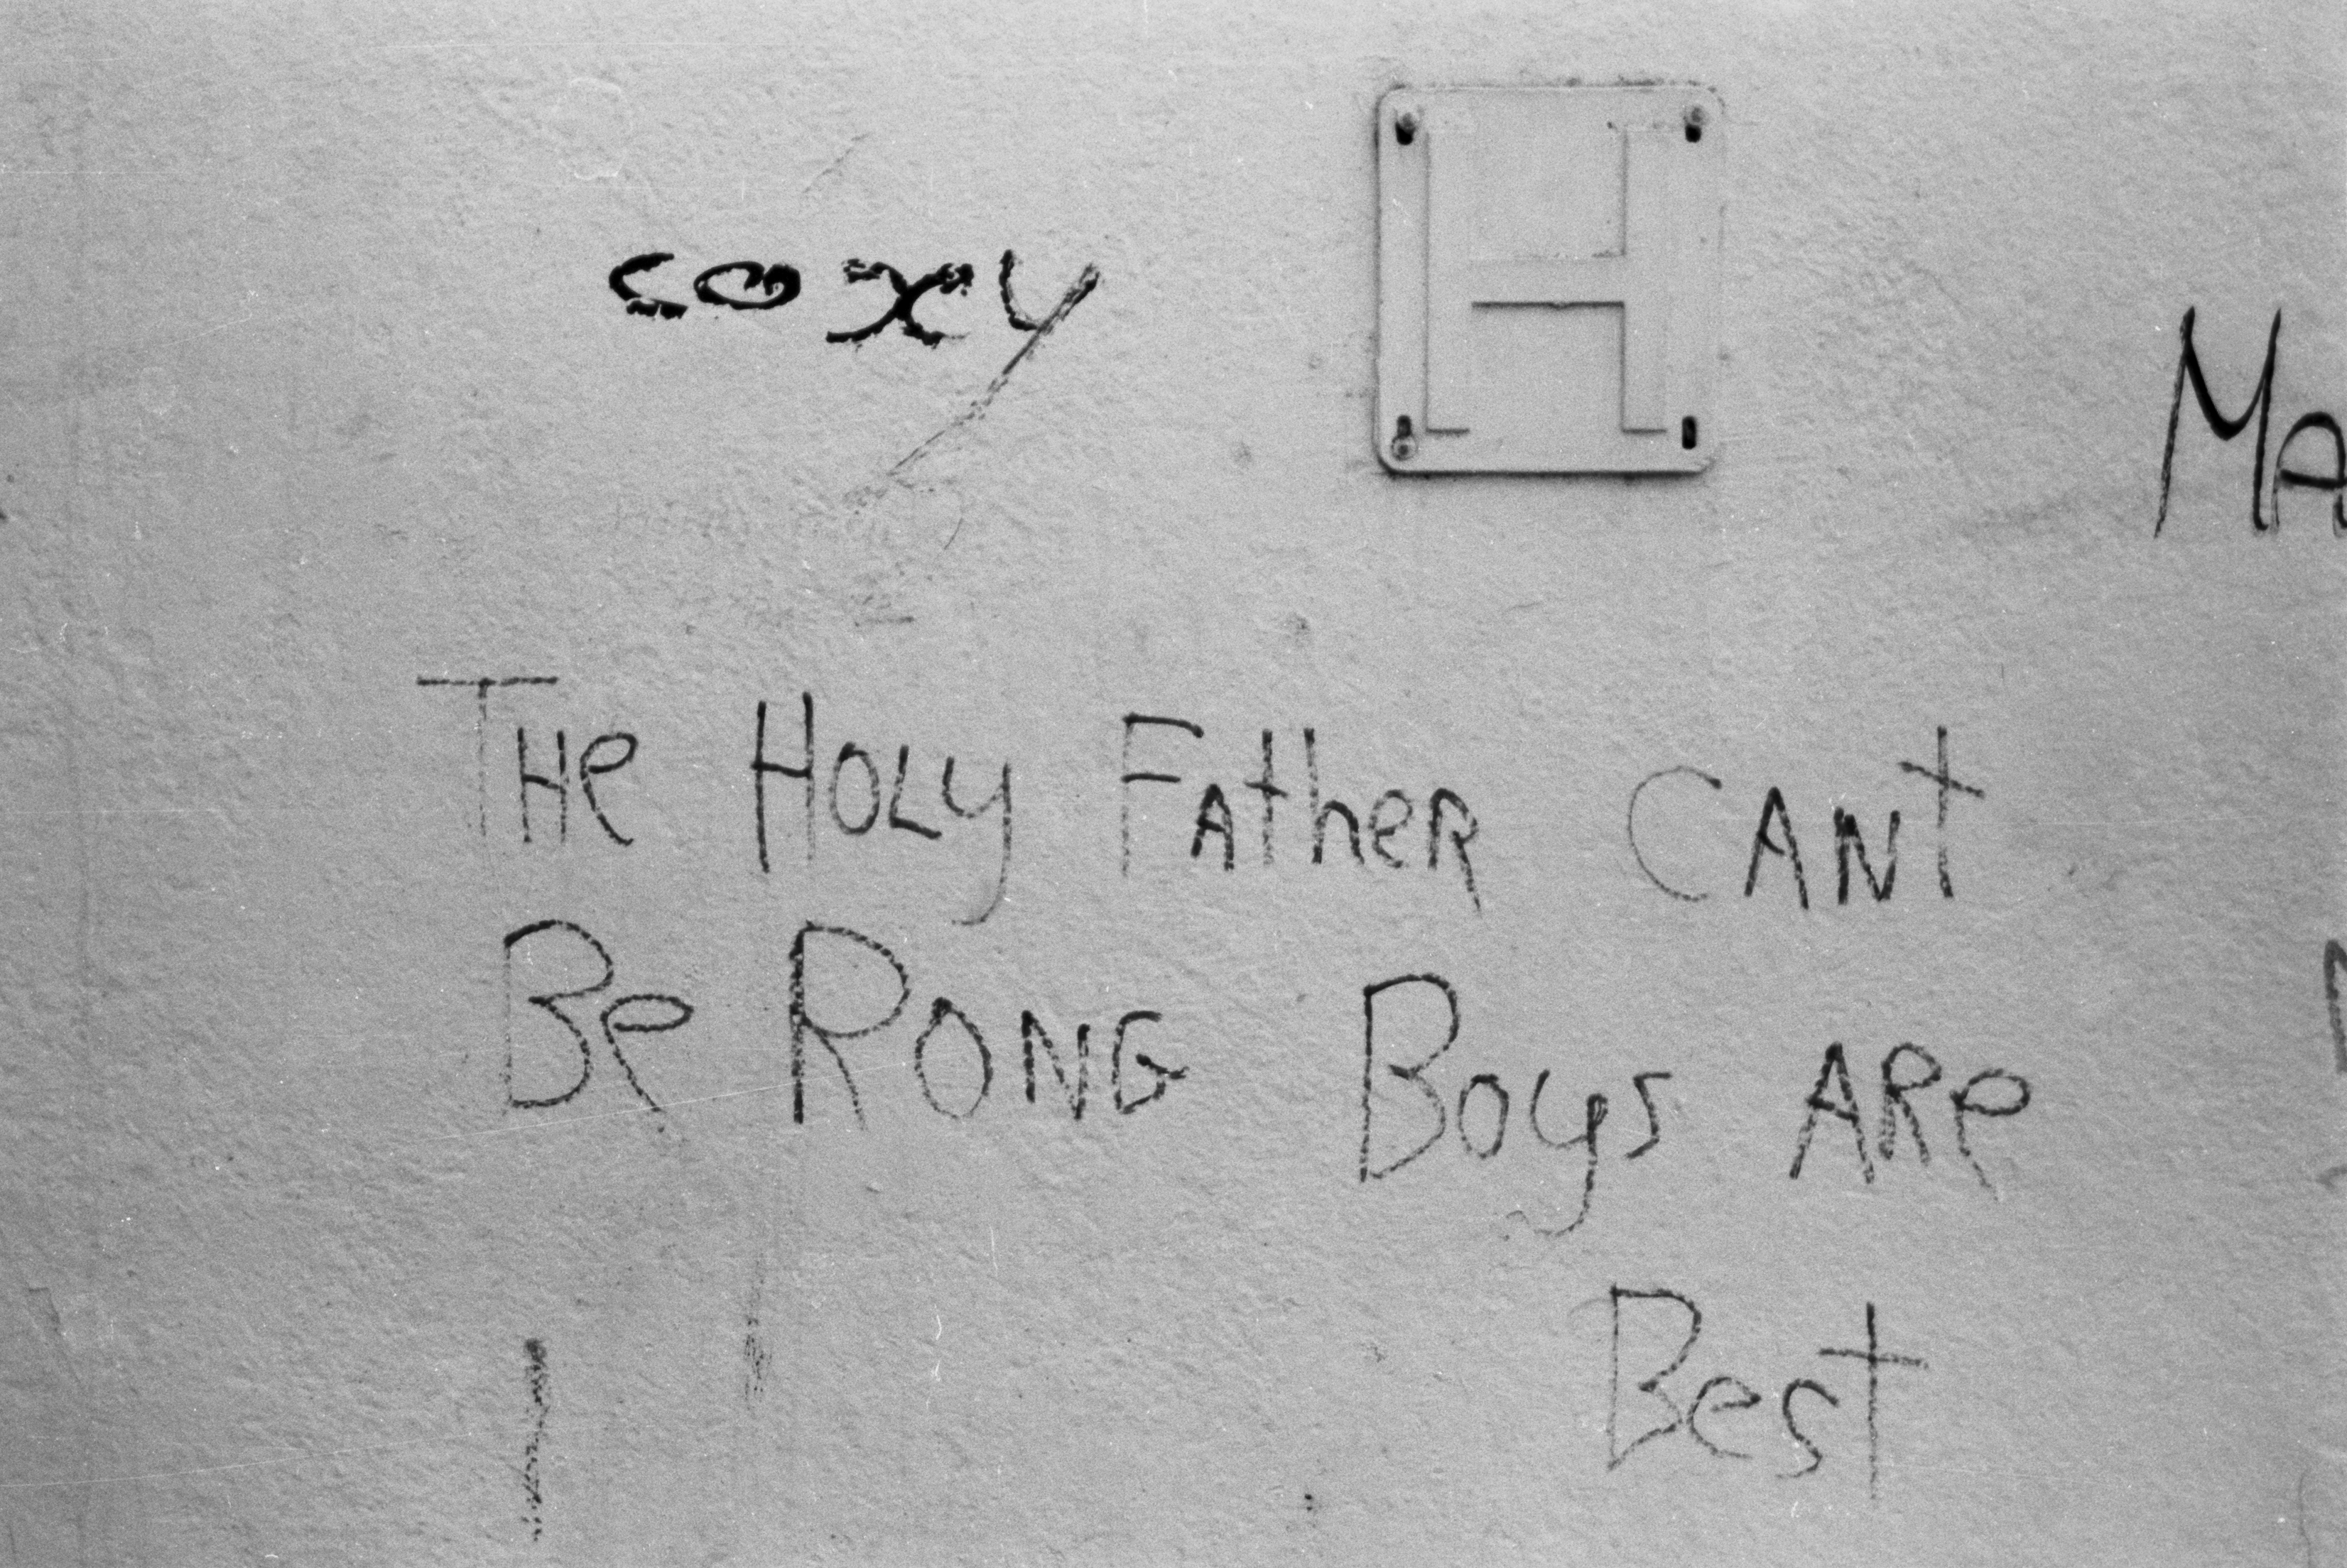 coxy
H
MA
THe HOLy FATher CANt
Be RONG Boys ARe
Best